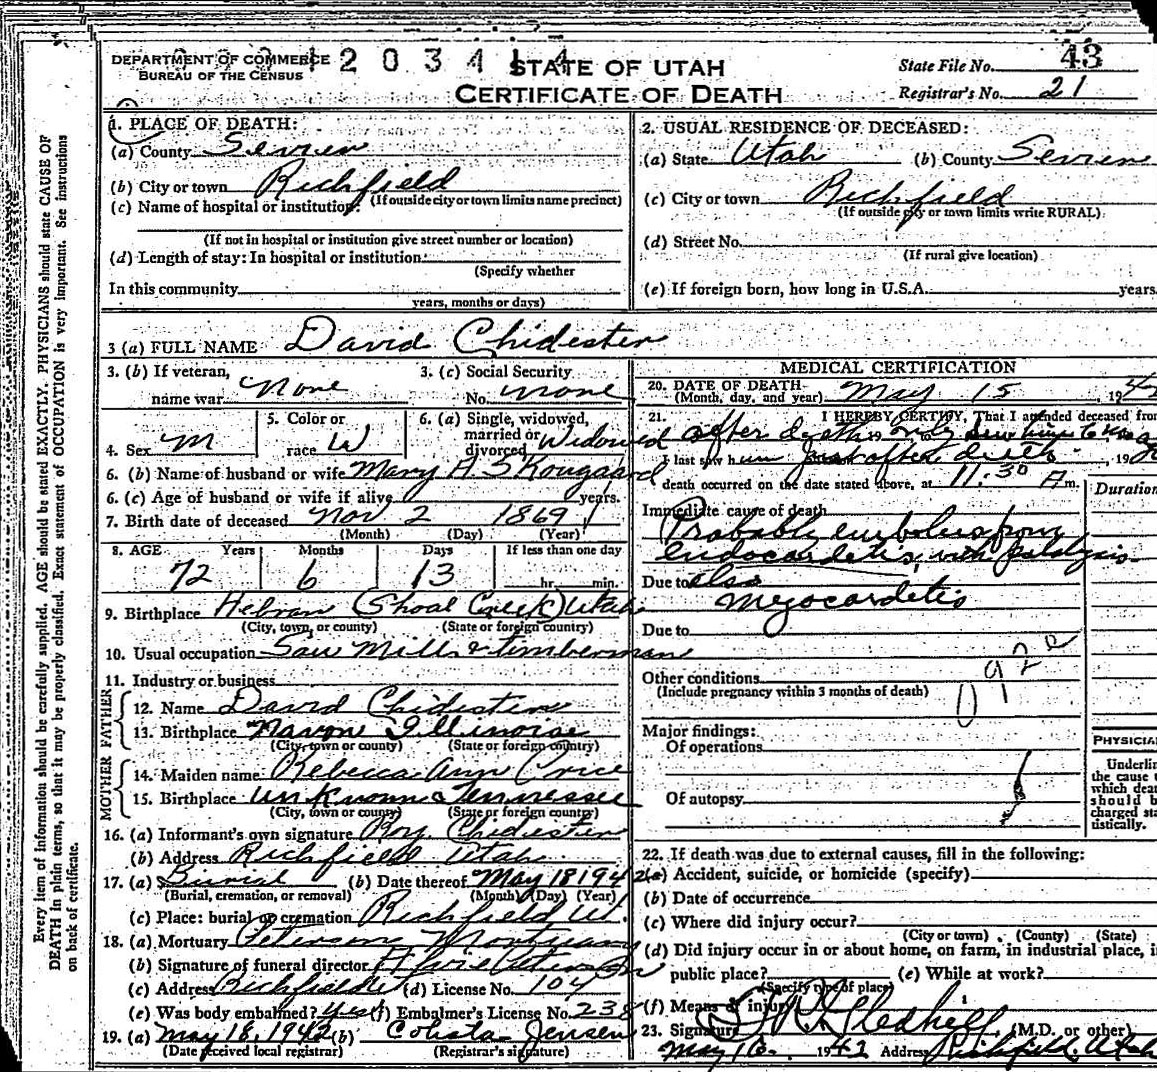 DEPARTMENT OF COMMERCE
BUREAU OF THE CENSUS
1 2 0 3 4 1 4
STATE OF UTAH
CERTIFICATE OF DEATH
State File No. 43
Registrar's No. 21
Every item of information should be carefully supplied. AGE should be stated EXACTLY. PHYSICIANS should state CAUSE OF
DEATH in plain terms, so that it may be properly classified. Exact statement of OCCUPATION is very important. See instructions
on back of certificate.
1. PLACE OF DEATH:
(a) County Sevier
(b) City or town Richfield
(If outside city or town limits name precinct)
(c) Name of hospital or institution:
(If not in hospital or institution give street number or location)
(d) Length of stay: In hospital or institution
(Specify whether
In this community
years, months or days)
2. USUAL RESIDENCE OF DECEASED:
(a) State Utah (b) County Sevier
(c) City or town Richfield
(If outside city or town limits write RURAL)
(d) Street No.
(If rural give location)
(e) If foreign born, how long in U.S.A. years
3 (a) FULL NAME David Chidester
3. (b) If veteran, name war None
3. (c) Social Security No. none
4. Sex M
5. Color or race W
6. (a) Single, widowed, married or divorced Widowed
6. (b) Name of husband or wife Mary A Skougaard
6. (c) Age of husband or wife if alive years.
7. Birth date of deceased Nov 2 1869
(Month) (Day) (Year)
8. AGE Years Months Days If less than one day
72 6 13 hr. min.
9. Birthplace Hebran (Shoal Creek) Utah
(City, town, or county) (State or foreign country)
10. Usual occupation Saw Mill & timberman
11. Industry or business
FATHER
12. Name David Chidester
13. Birthplace Navoo Illinoise
(City, town or county) (State or foreign country)
MOTHER
14. Maiden name Rebecca Ann Price
15. Birthplace unknown Tennessee
(City, town or county) (State or foreign country)
16. (a) Informant's own signature Roy Chidester
(b) Address Richfield Utah
17. (a) Burial (b) Date thereof May 18 1942
(Burial, cremation, or removal) (Month) (Day) (Year)
(c) Place: burial or cremation Richfield Ut.
18. (a) Mortuary Petersens Mortuary
(b) Signature of funeral director
(c) Address Richfield (d) License No. 104
(e) Was body embalmed? yes (f) Embalmer's License No. 238
19. (a) May 18, 1942 (b) Jensen
(Date received local registrar) (Registrar's signature)
MEDICAL CERTIFICATION
20. DATE OF DEATH May 15 1942
(Month, day, and year)
21. I HEREBY CERTIFY, That I attended deceased from
after death only
I last saw him just after death 19
death occurred on the date stated above, at 11:30 A m.
Immediate cause of death Duration
Probably embolus from
endocardetis, with paralysis
Due to also
Myocardetis
Due to
Other conditions
(Include pregnancy within 3 months of death)
Major findings:
Of operations
Of autopsy
PHYSICIA
Underlin
the cause t
which deat
should b
charged sta
tistically.
22. If death was due to external causes, fill in the following:
(a) Accident, suicide, or homicide (specify)
(b) Date of occurrence
(c) Where did injury occur?
(City or town) (County) (State)
(d) Did injury occur in or about home, on farm, in industrial place, i
public place? (e) While at work?
(Specify type of place)
(f) Means of injury
23. Signature Gledhill (M.D. or other)
May 16 1942 Address Richfield, Utah